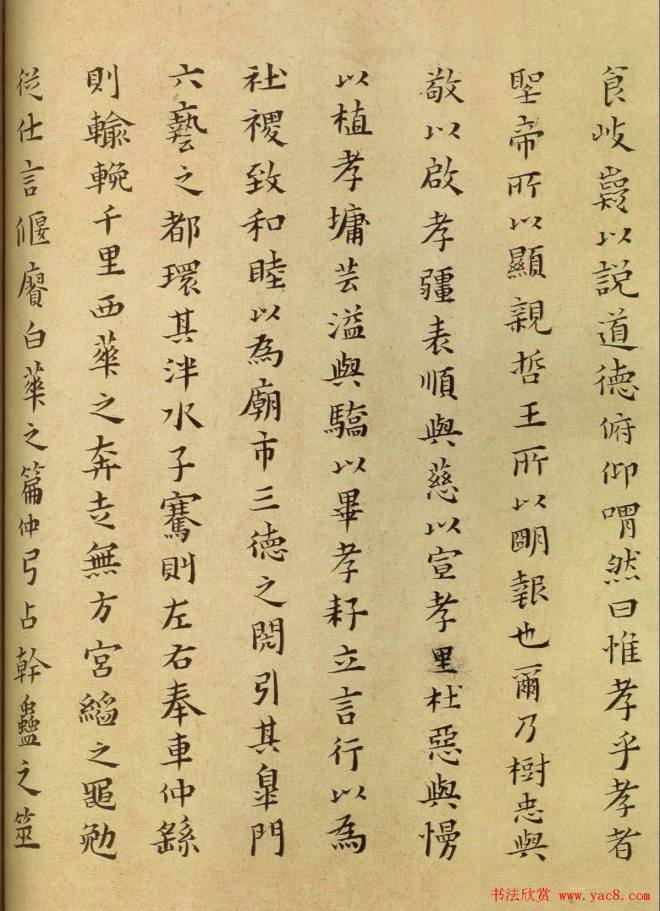 食岐嶷以説道德俯仰喟然曰惟孝乎孝者
聖帝所以顯親哲王所以朙報也爾乃樹忠與
敬以啟孝疆表順與慈以宣孝里杜惡與慢
以植孝墉芸溢與驕以畢孝耔立言行以為
社稷致和睦以為廟市三德之閎引其皐門
六藝之都環其泮水子騫則左右奉車仲繇
則輸輓千里西華之奔走無方宮縚之黽勉
從仕言偃賡白華之篇仲弓占幹蠱之筮
书法欣赏 www.yac8.com